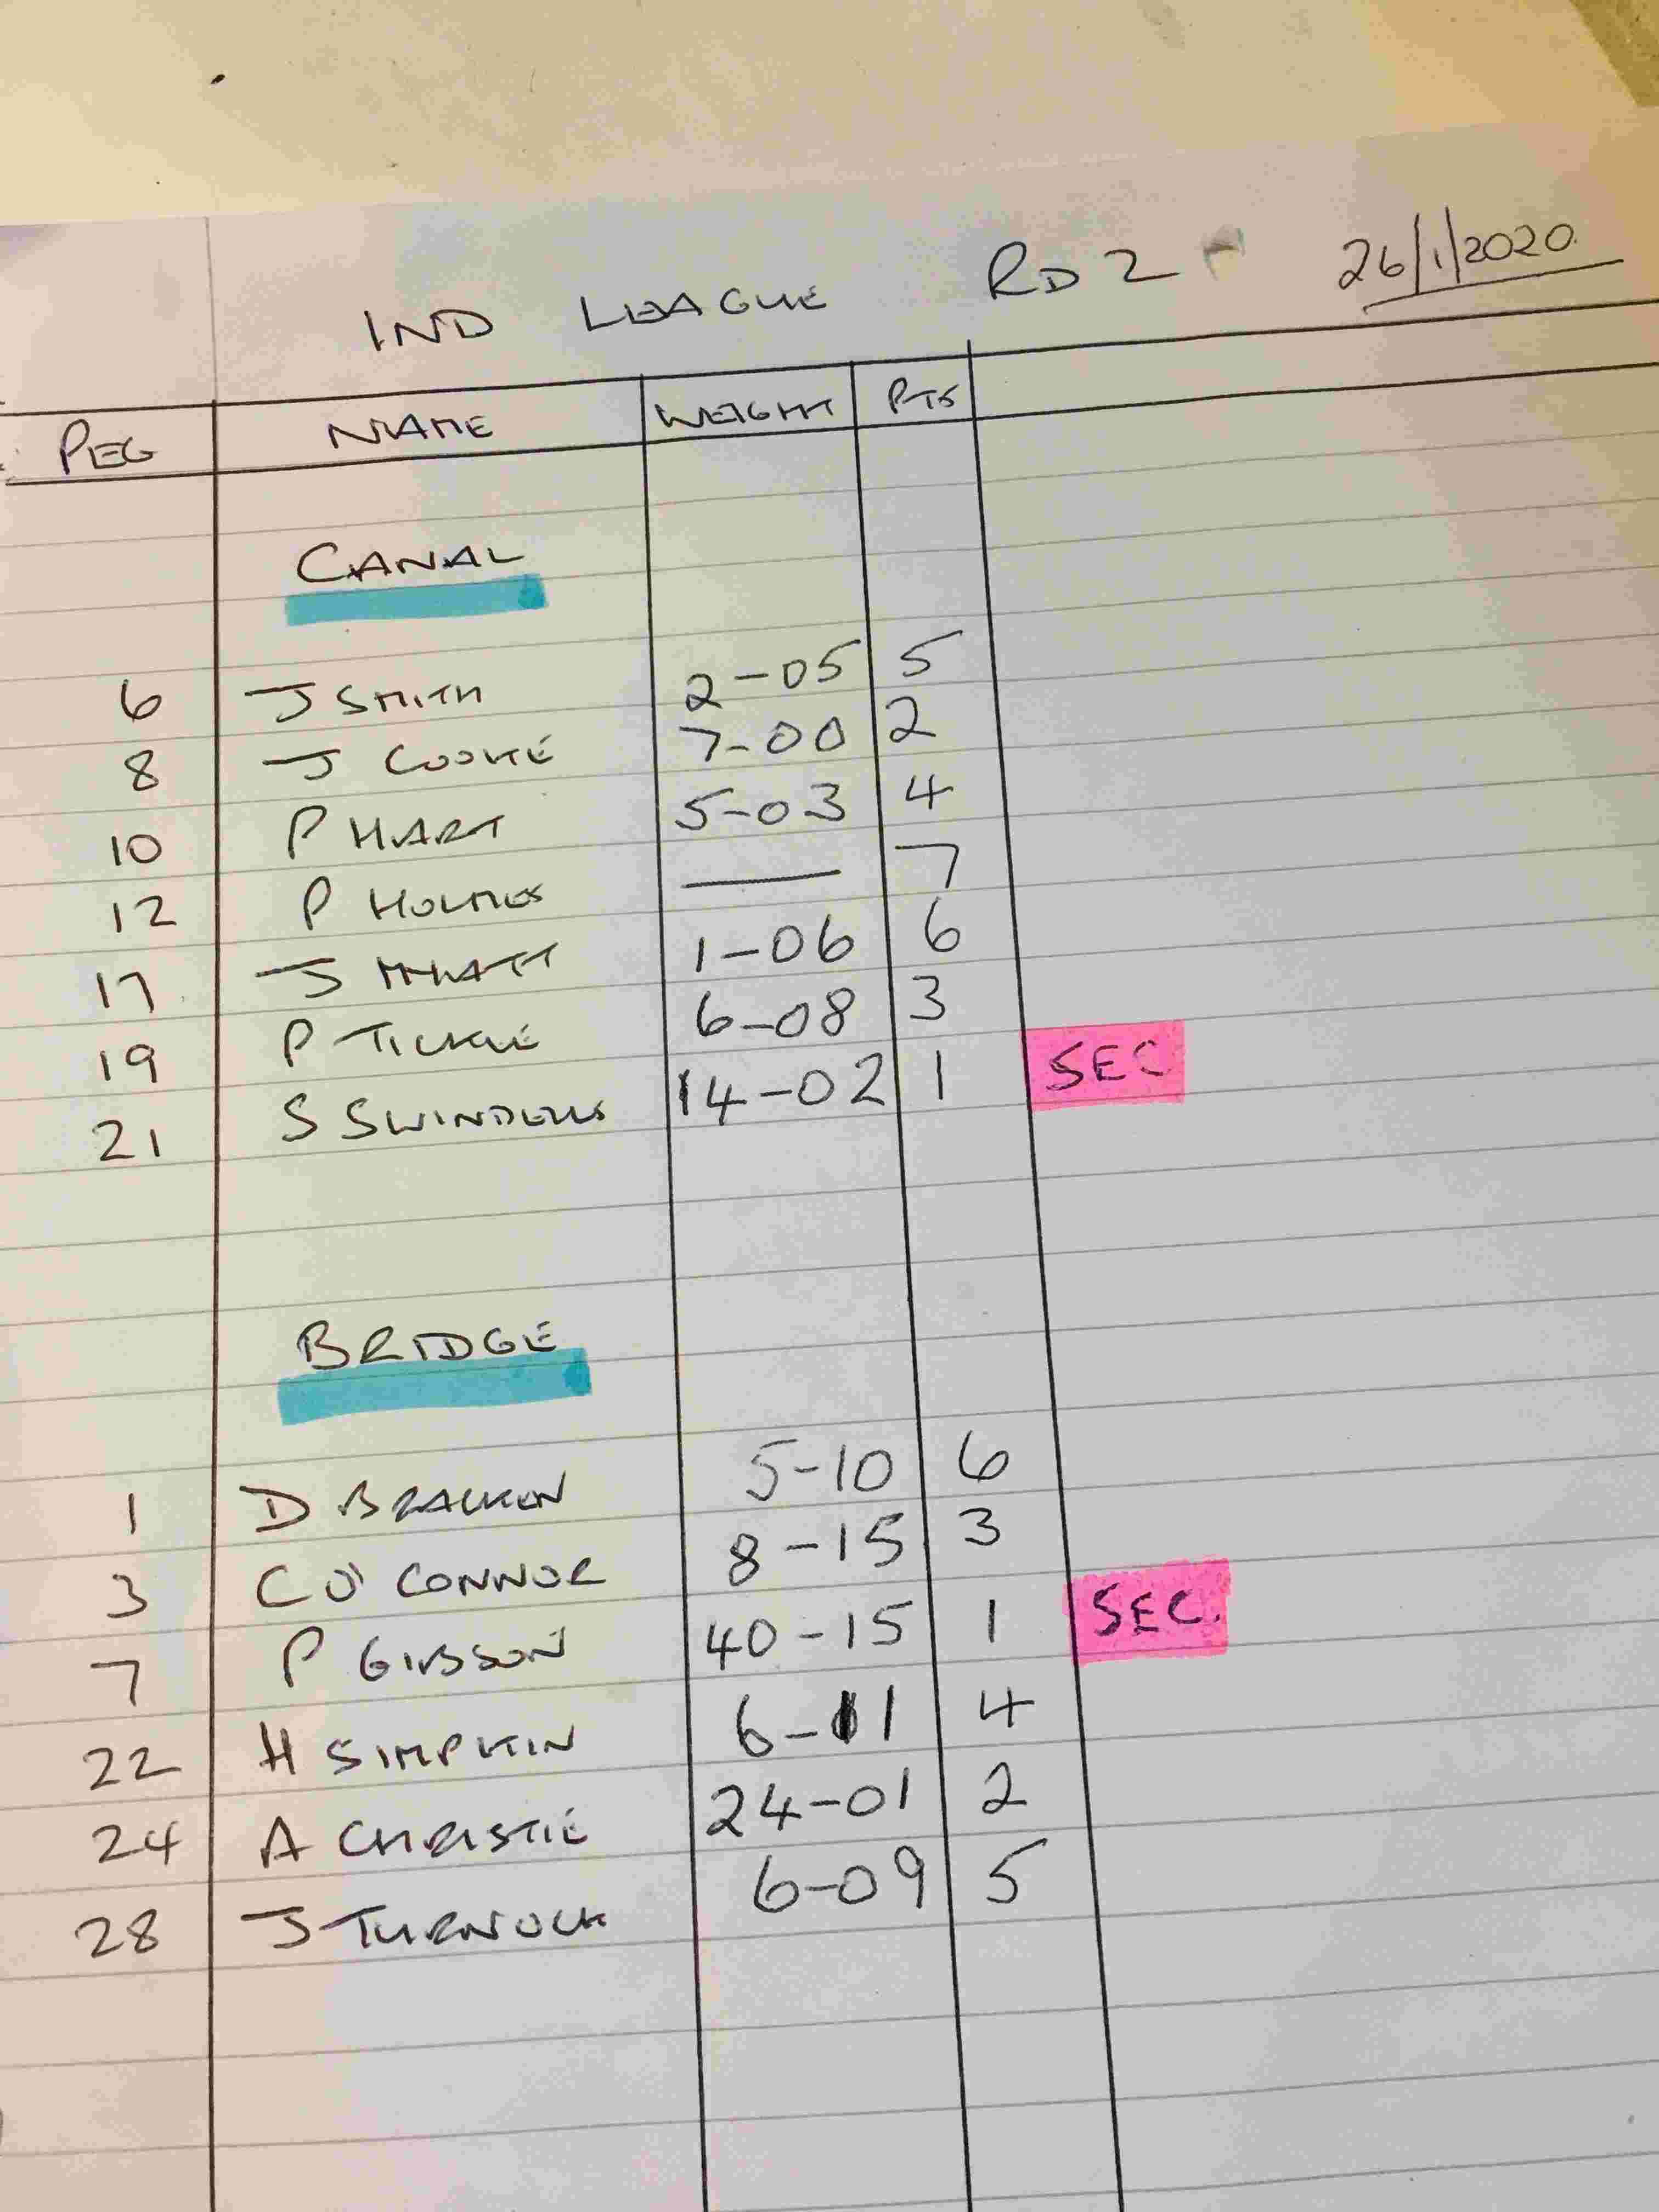 IND LEAGUE RD 2 - 26/1/2020
PEG NAME WEIGHT PTS
CANAL
6 J SMITH 2-05 5
8 J COOKE 7-00 2
10 P HART 5-03 4
12 P HOLMES — 7
17 J MYATT 1-06 6
19 P TICKLE 6-08 3
21 S SWINDELLS 14-02 1 SEC
BRIDGE
1 D BRACKEN 5-10 6
3 C O'CONNOR 8-15 3
7 P GIBSON 40-15 1 SEC.
22 H SIMPKIN 6-11 4
24 A CHRISTIE 24-01 2
28 J TURNOCK 6-09 5